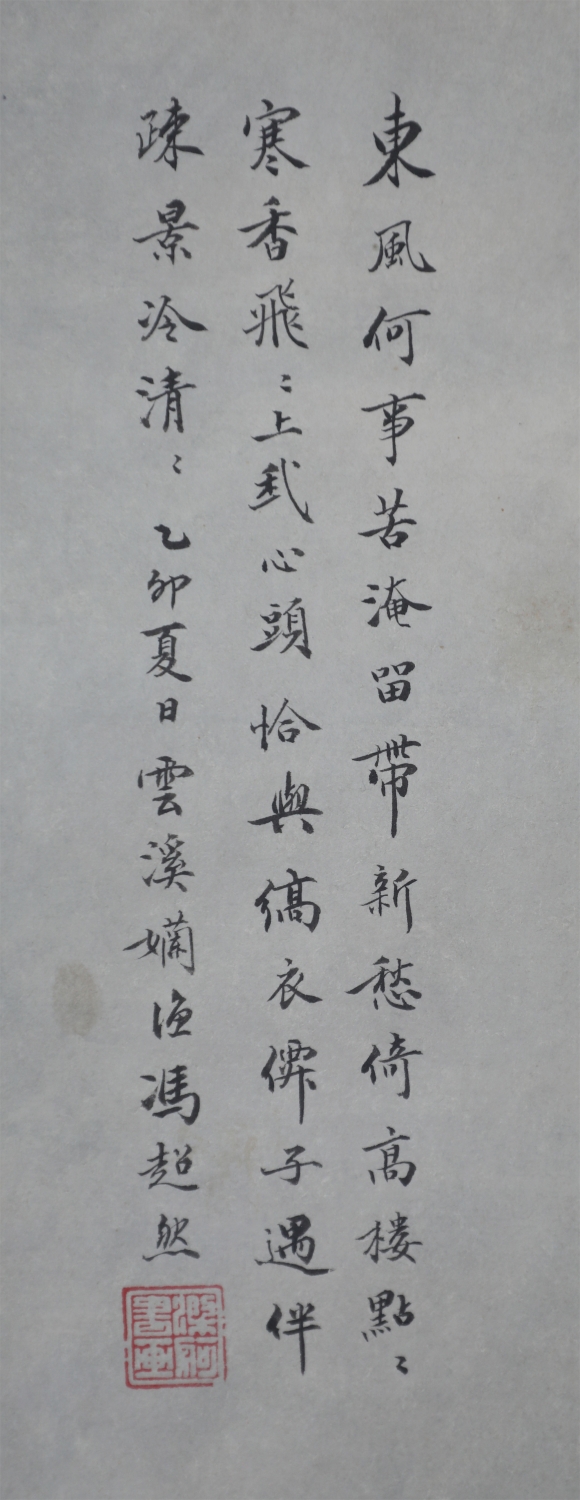 東風何事苦淹留帶新愁倚高樓點〻
寒香飛〻上我心頭恰與縞衣僊子遇伴
疎景冷清〻 乙卯夏日雲溪嬾漁馮超然
滌舸書画